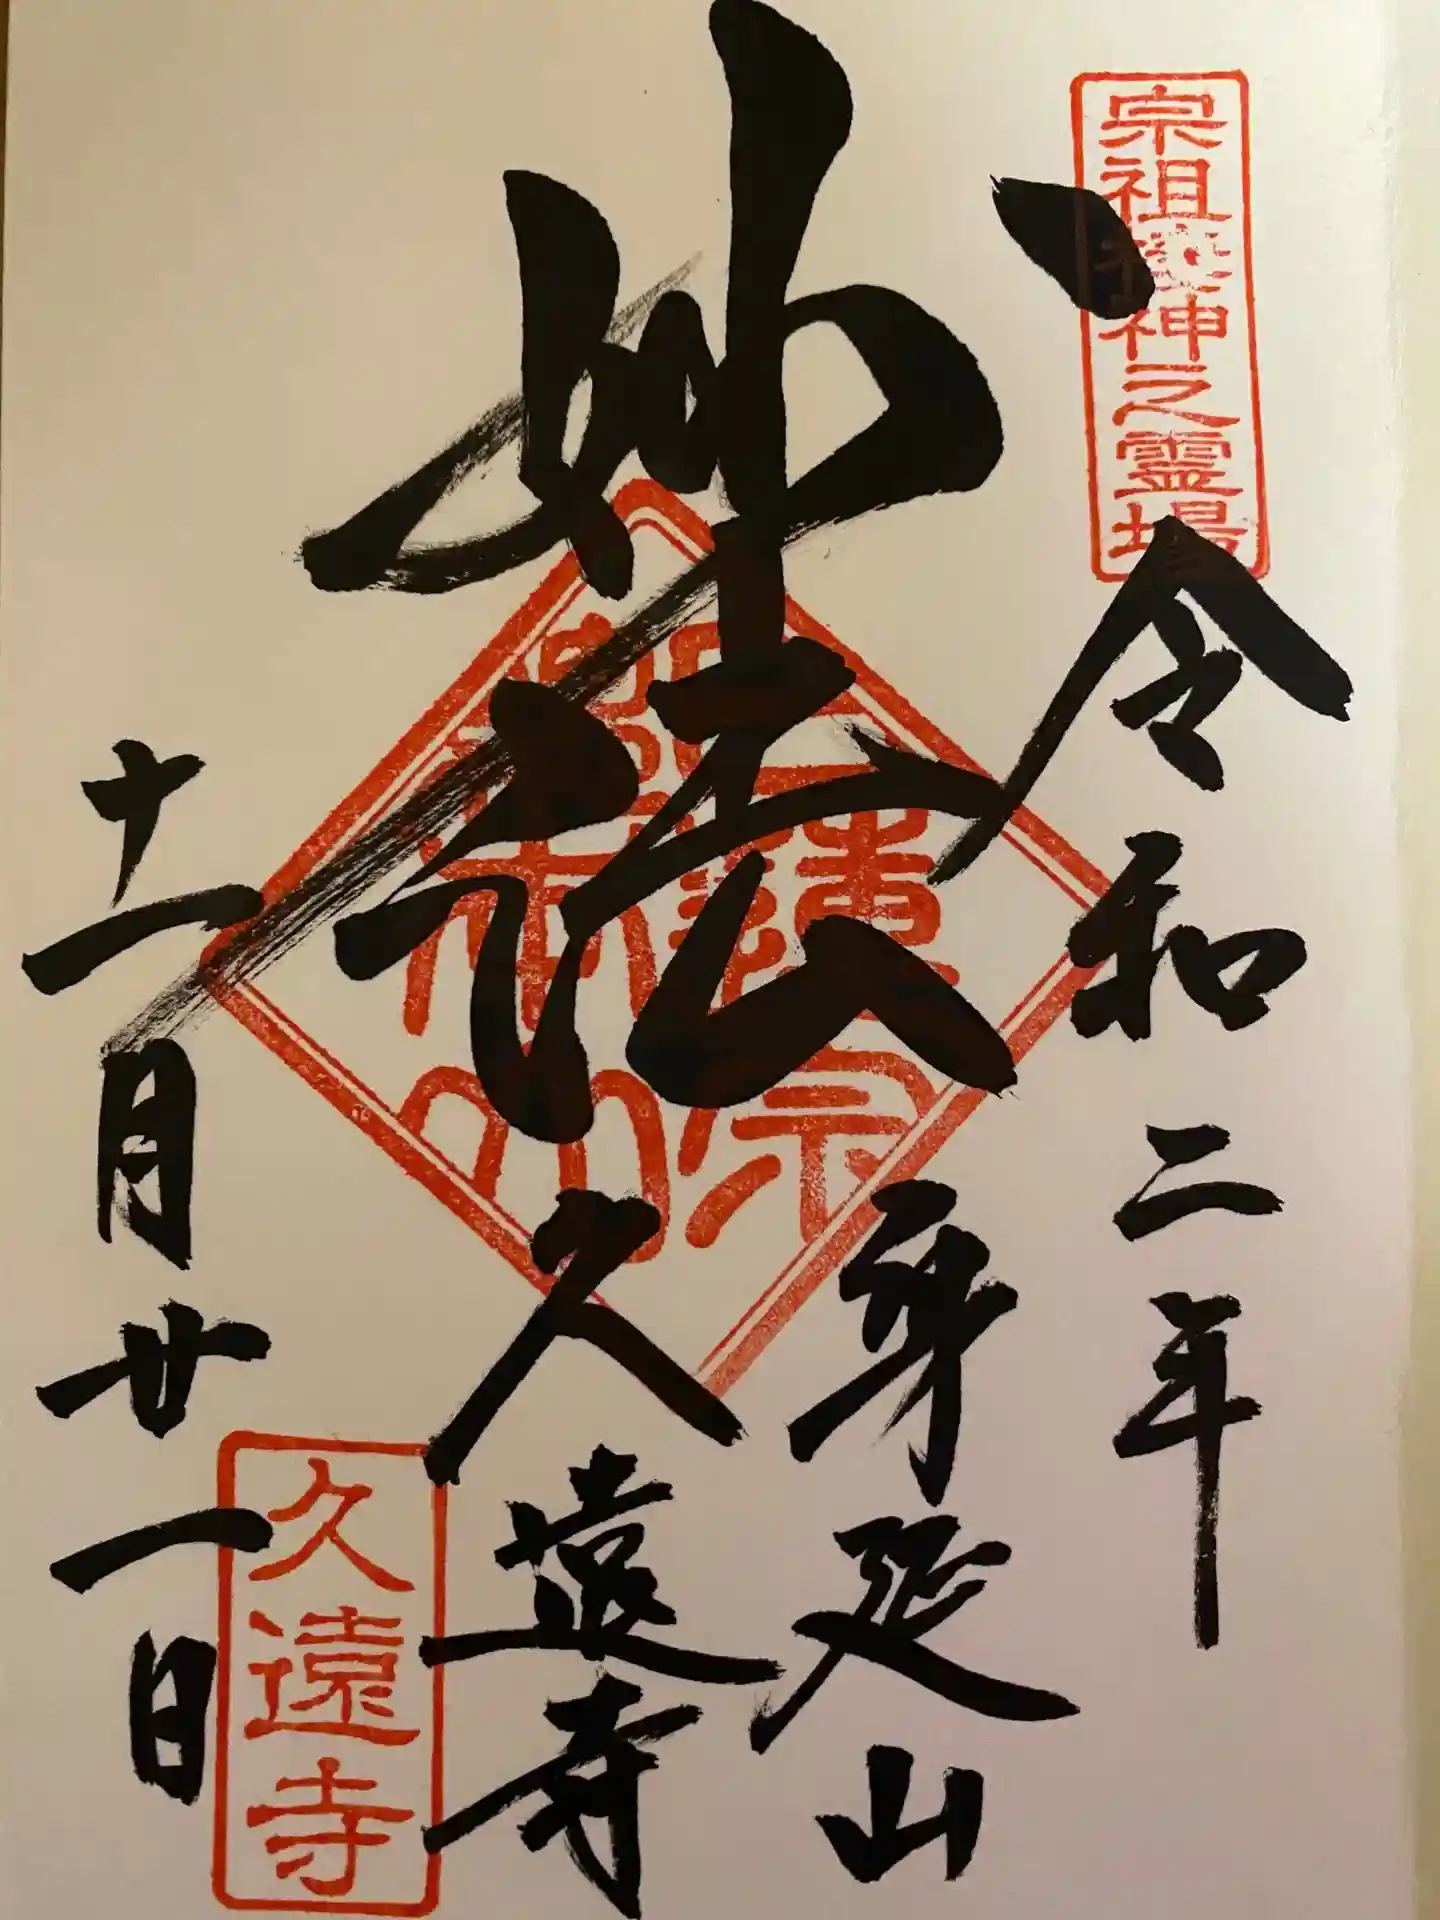 宗祖棲神之霊場
令和二年
妙法
身延山
久遠寺
十一月廿一日
久遠寺